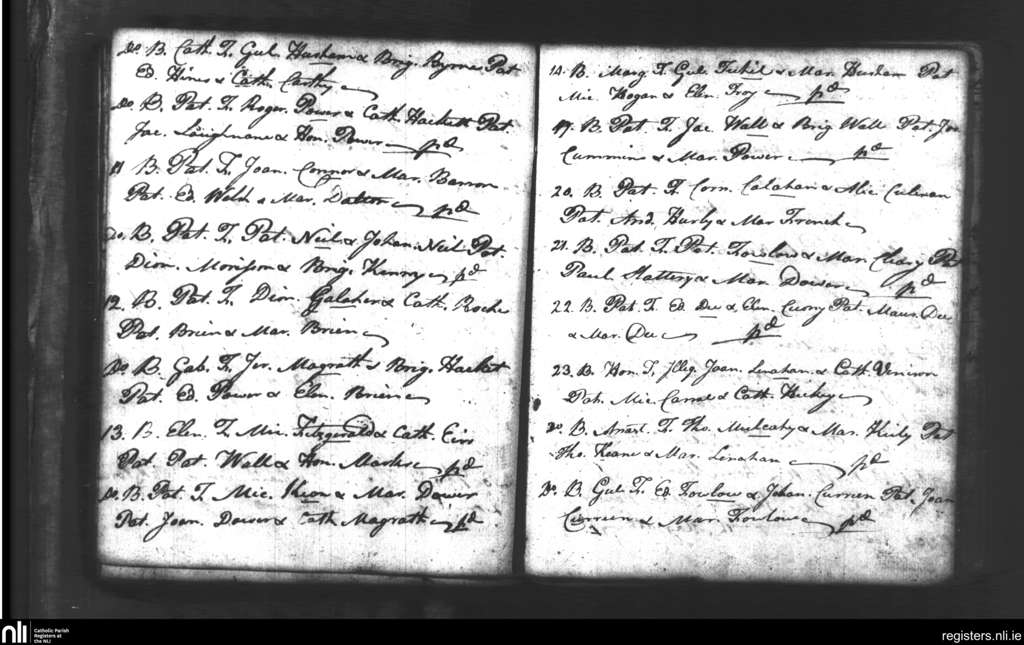 Do. B. Cath. F. Gul. Hasham & Brig. Byrne Pat.
Ed. Hines & Cath. Carthy
Do. B. Pat. F. Roger Power & Cath. Hackett Pat.
Jac. Loughnane & Hon. Power pd
11 B. Pat. F. Joan. Connor & Mar. Barron
Pat. Ed. Welsh & Mar. Dalton pd
Do. B. Pat. F. Pat. Neil & Johan. Neil Pat.
Dion. Morisson & Brig. Kenny pd
12. B. Pat. F. Dion. Galaher & Cath. Roche
Pat. Brien & Mar. Brien
Do B. Gab. F. Jer. Magrath & Brig. Hacket
Pat. Ed. Power & Elen. Brien
13. B. Elen. F. Mic. Fitzgerald & Cath.
Pat. Pat. Wall & Hon. pd
Do. B. Pat. F. Mic. Keon & Mar. Dower
Pat. Joan. Dower & Cath. Magrath pd
14. B. Marg. F. Gul. & Mar. Pat
Mic. Hogan & Elen. Troy pd
17. B. Pat. F. Jac. Wall & Brig. Wall Pat. Jac
Cummins & Mar. Power pd
20. B. Pat. F. Corn. Calahan & Alic. Culinan
Pat. And. Hurly & Mar. French
21. B. Pat. F. Pat. Fowlow & Mar. Cleary Pat
Paul Slattery & Mar. Dower pd
22. B. Pat. F. Ed. Dee & Elen. Curry Pat. Maur. Dee
& Mar. Dee pd
23. B. Hon. F. Illeg. Joan. Linahan & Cath.
Pat. Mic. & Cath. Hickey
Do. B. Anast. F. Tho. Mulcahy & Mar. Kiely Pat
Tho. Keane & Mar. Linahan pd
Do. B. Gul. F. Ed. Fowlow & Johan. Curreen Pat. Joan
Curreen & Mar. Fowlow pd
nli Catholic Parish
Registers at
the NLI
registers.nli.ie